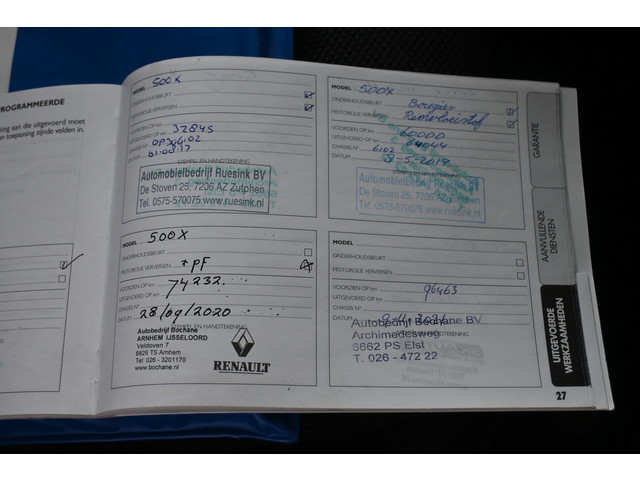 PROGRAMMEERDE
ing aan die uitgevoerd moet
n toepassing zijnde velden in.
MODEL 500X
ONDERHOUDSBEURT
MOTOROLIE VERVERSEN
VOORZIEN OP km 32845
UITGEVOERD OP km
CHASSIS N°
DATUM 01-08-17
STEMPEL EN HANDTEKENING
Automobielbedrijf Ruesink BV
De Stoven 25, 7206 AZ Zutphen
Tel. 0575-570075 www.ruesink.nl
MODEL 500X
ONDERHOUDSBEURT Bougies
MOTOROLIE VERVERSEN Remvloeistof
VOORZIEN OP km 60000
UITGEVOERD OP km 64044
CHASSIS N° 6102
DATUM 8-5-2019
Automobielbedrijf Ruesink BV
De Stoven 25, 7206 AZ Zutphen
Tel. 0575-570075 www.ruesink.nl
MODEL 500X
ONDERHOUDSBEURT
MOTOROLIE VERVERSEN + PF
VOORZIEN OP km 74232
UITGEVOERD OP km
CHASSIS N°
DATUM 28/09/2020
STEMPEL EN HANDTEKENING
Autobedrijf Bochane
ARNHEM IJSSELOORD
Veldoven 7
6826 TS Arnhem
Tel: 026 - 3201170
www.bochane.nl
RENAULT
MODEL
ONDERHOUDSBEURT
MOTOROLIE VERVERSEN
VOORZIEN OP km 96463
UITGEVOERD OP km
CHASSIS N°
DATUM
STEMPEL EN HANDTEKENING
Autobedrijf Bochane BV
Archimedesweg
6662 PS Elst
T. 026 - 472 22
GARANTIE
AANVULLENDE
DIENSTEN
UITGEVOERDE
WERKZAAMHEDEN
27